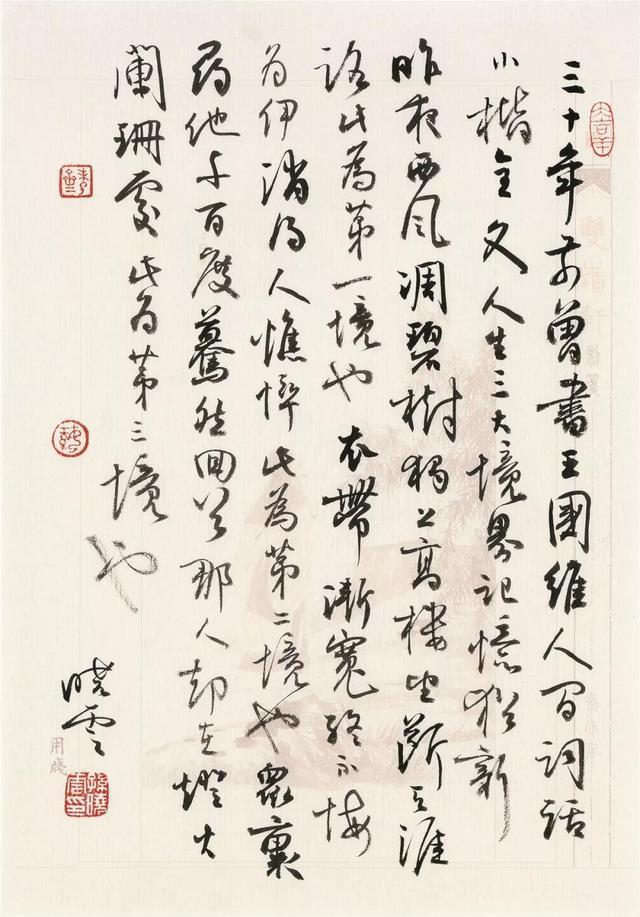 三十年前曾書王國維人间词话
小楷全文人生三大境界记憶猶新
昨夜西风凋碧樹獨上高樓望断天涯
路此為第一境也衣帶漸寬终不悔
为伊消得人憔悴此為第二境也眾裏
尋他千百度驀然回首那人却在燈火
闌珊處此为第三境也
晓雲
大吉羊
用牋
孫曉雲印